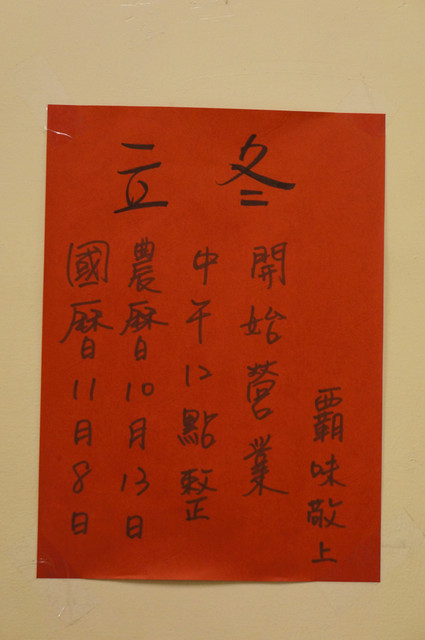 立冬
國曆11月8日
農曆10月13日
中午12點整
開始營業
覇味敬上